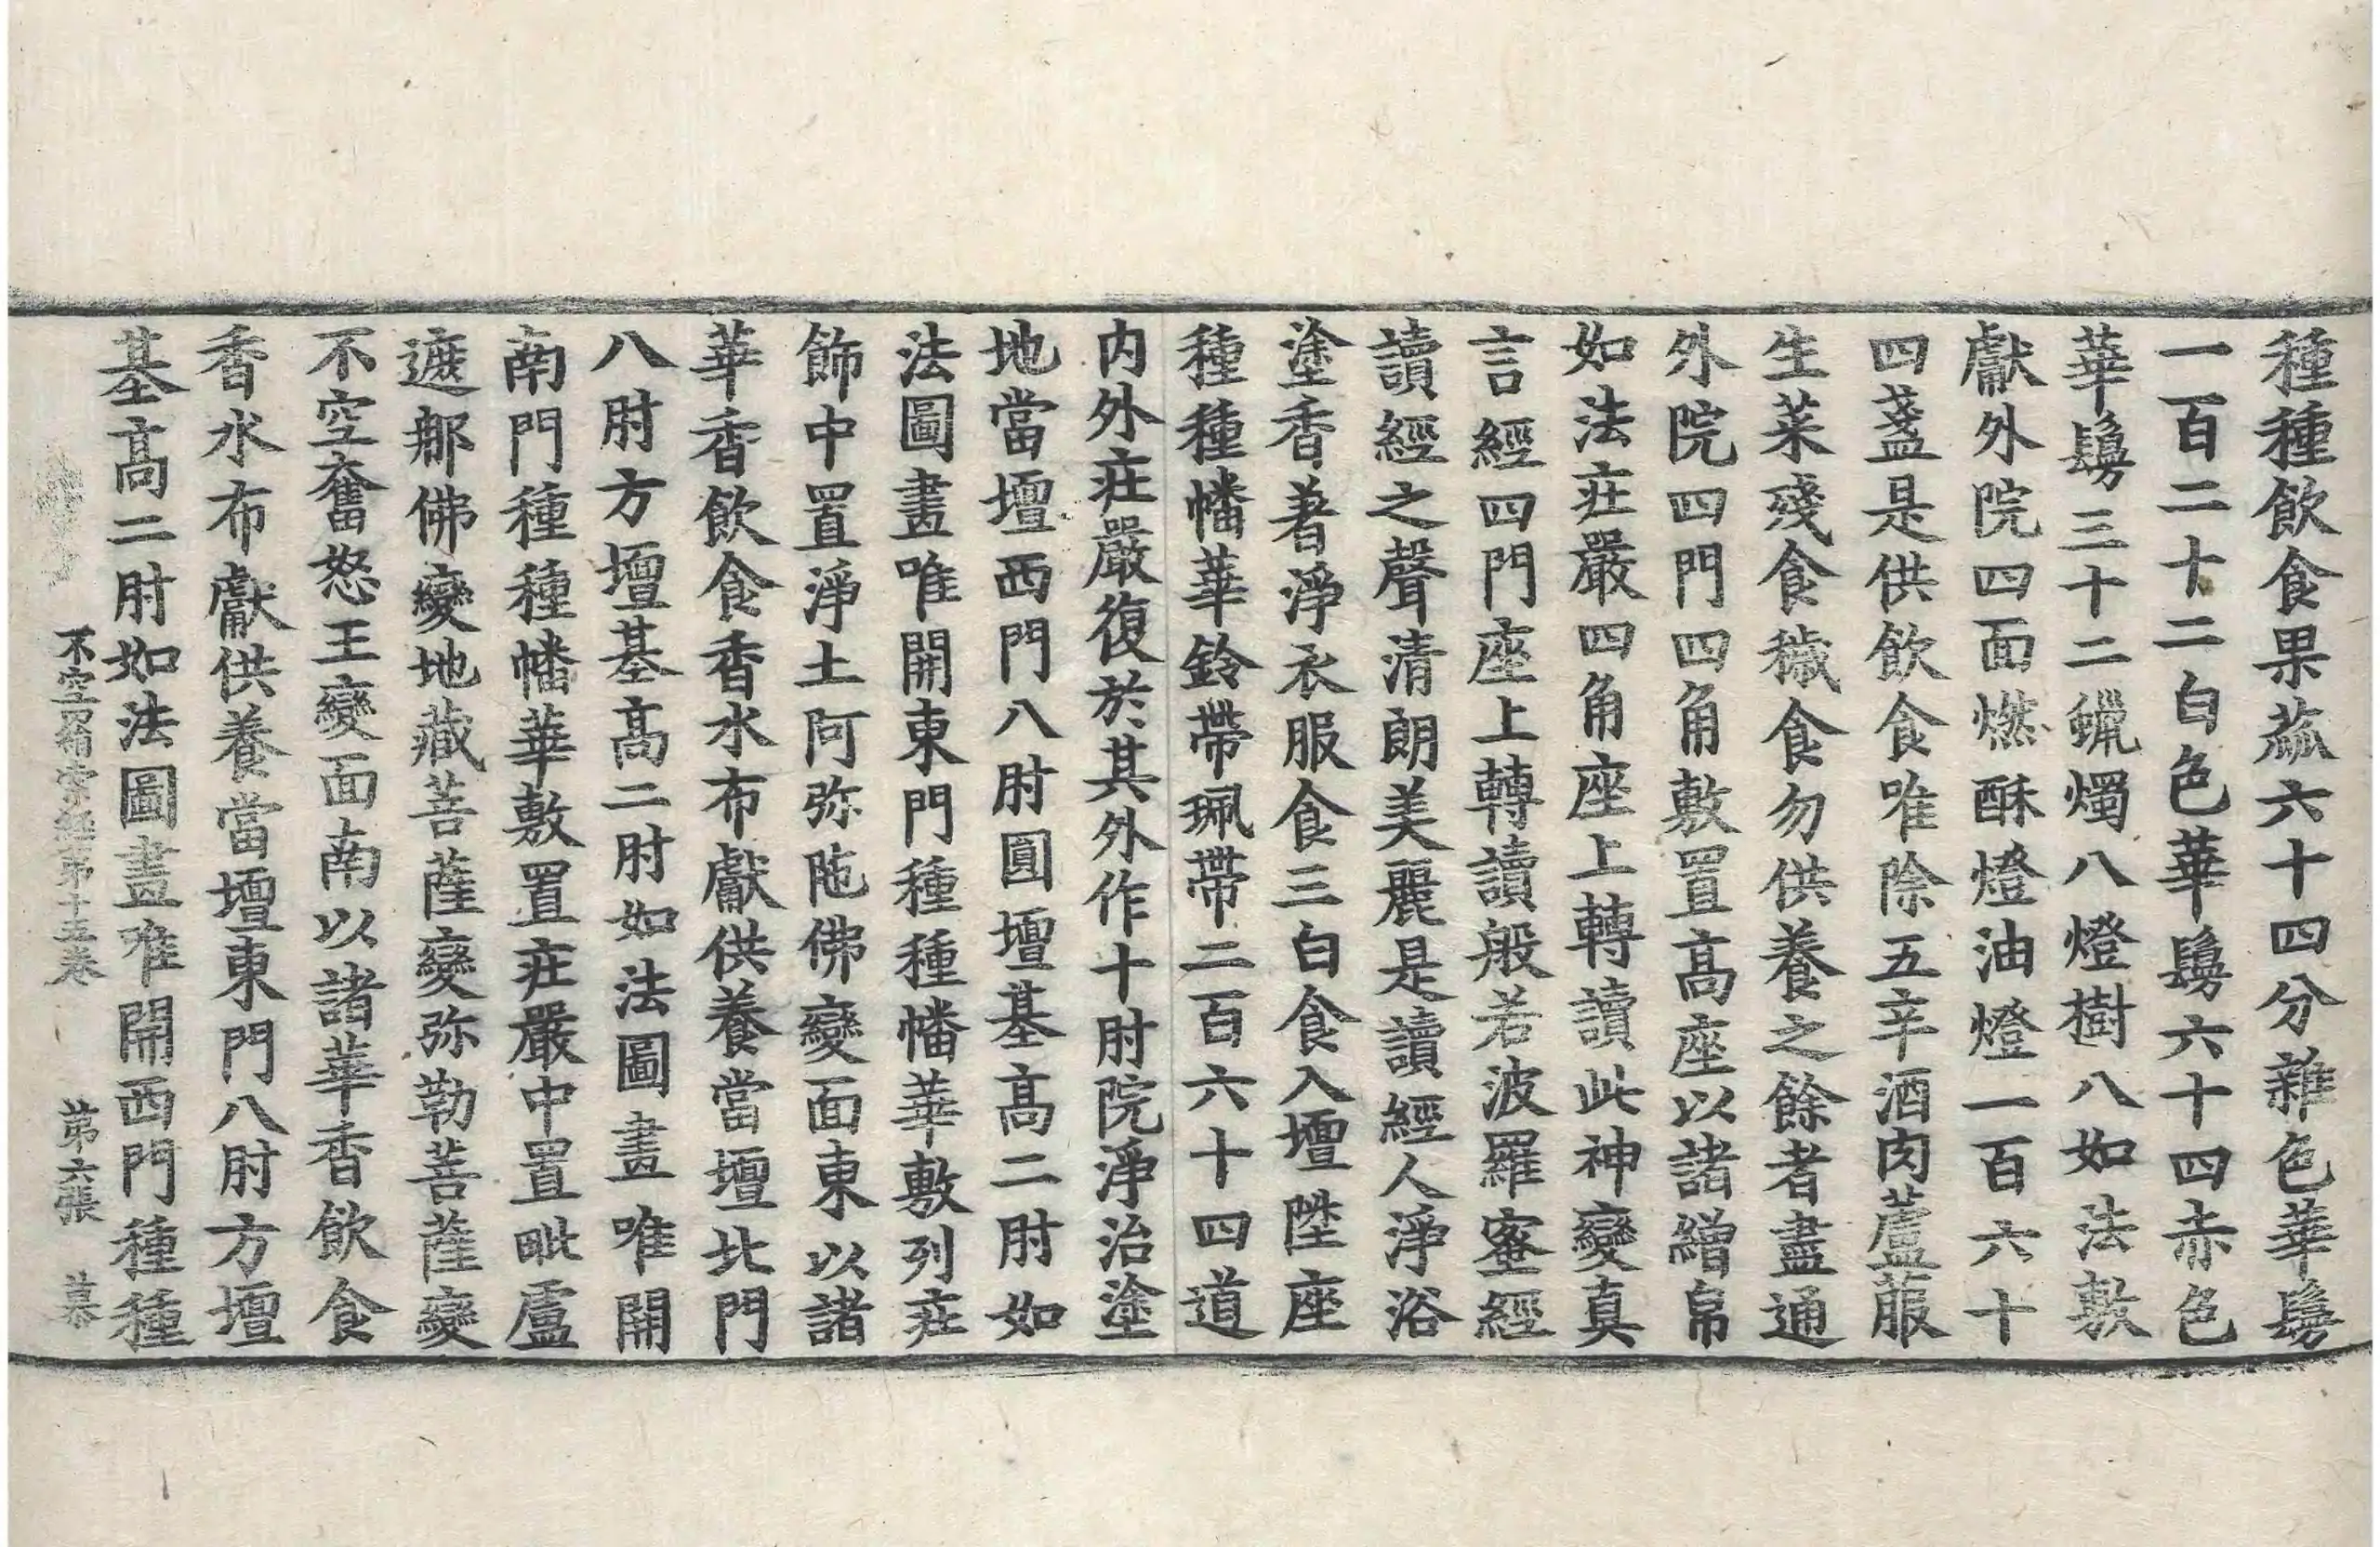 種種飲食果蓏六十四分雜色華鬘
一百二十二白色華鬘六十四赤色
華鬘三十二蠟燭八燈樹八如法敷
獻外院四面燃酥燈油燈一百六十
四盞是供飲食唯除五辛酒肉蘆菔
生菜殘食穢食勿供養之餘者盡通
外院四門四角敷置高座以諸繒帛
如法莊嚴四角座上轉讀此神變真
言經四門座上轉讀般若波羅蜜經
讀經之聲清朗美麗是讀經人淨浴
塗香著淨衣服食三白食入壇陞座
種種幡華鈴帶珮帶二百六十四道
内外莊嚴復於其外作十肘院淨治塗
地當壇西門八肘圓壇基高二肘如
法圖畫唯開東門種種幡華敷列莊
飾中置淨土阿弥陁佛變面東以諸
華香飲食香水布獻供養當壇北門
八肘方壇基高二肘如法圖畫唯開
南門種種幡華敷置莊嚴中置毗盧
遮那佛變地藏菩薩變弥勒菩薩變
不空奮怒王變面南以諸華香飲食
香水布獻供養當壇東門八肘方壇
基高二肘如法圖畫唯開西門種種
不空羂索經第十五卷 第六張 慕